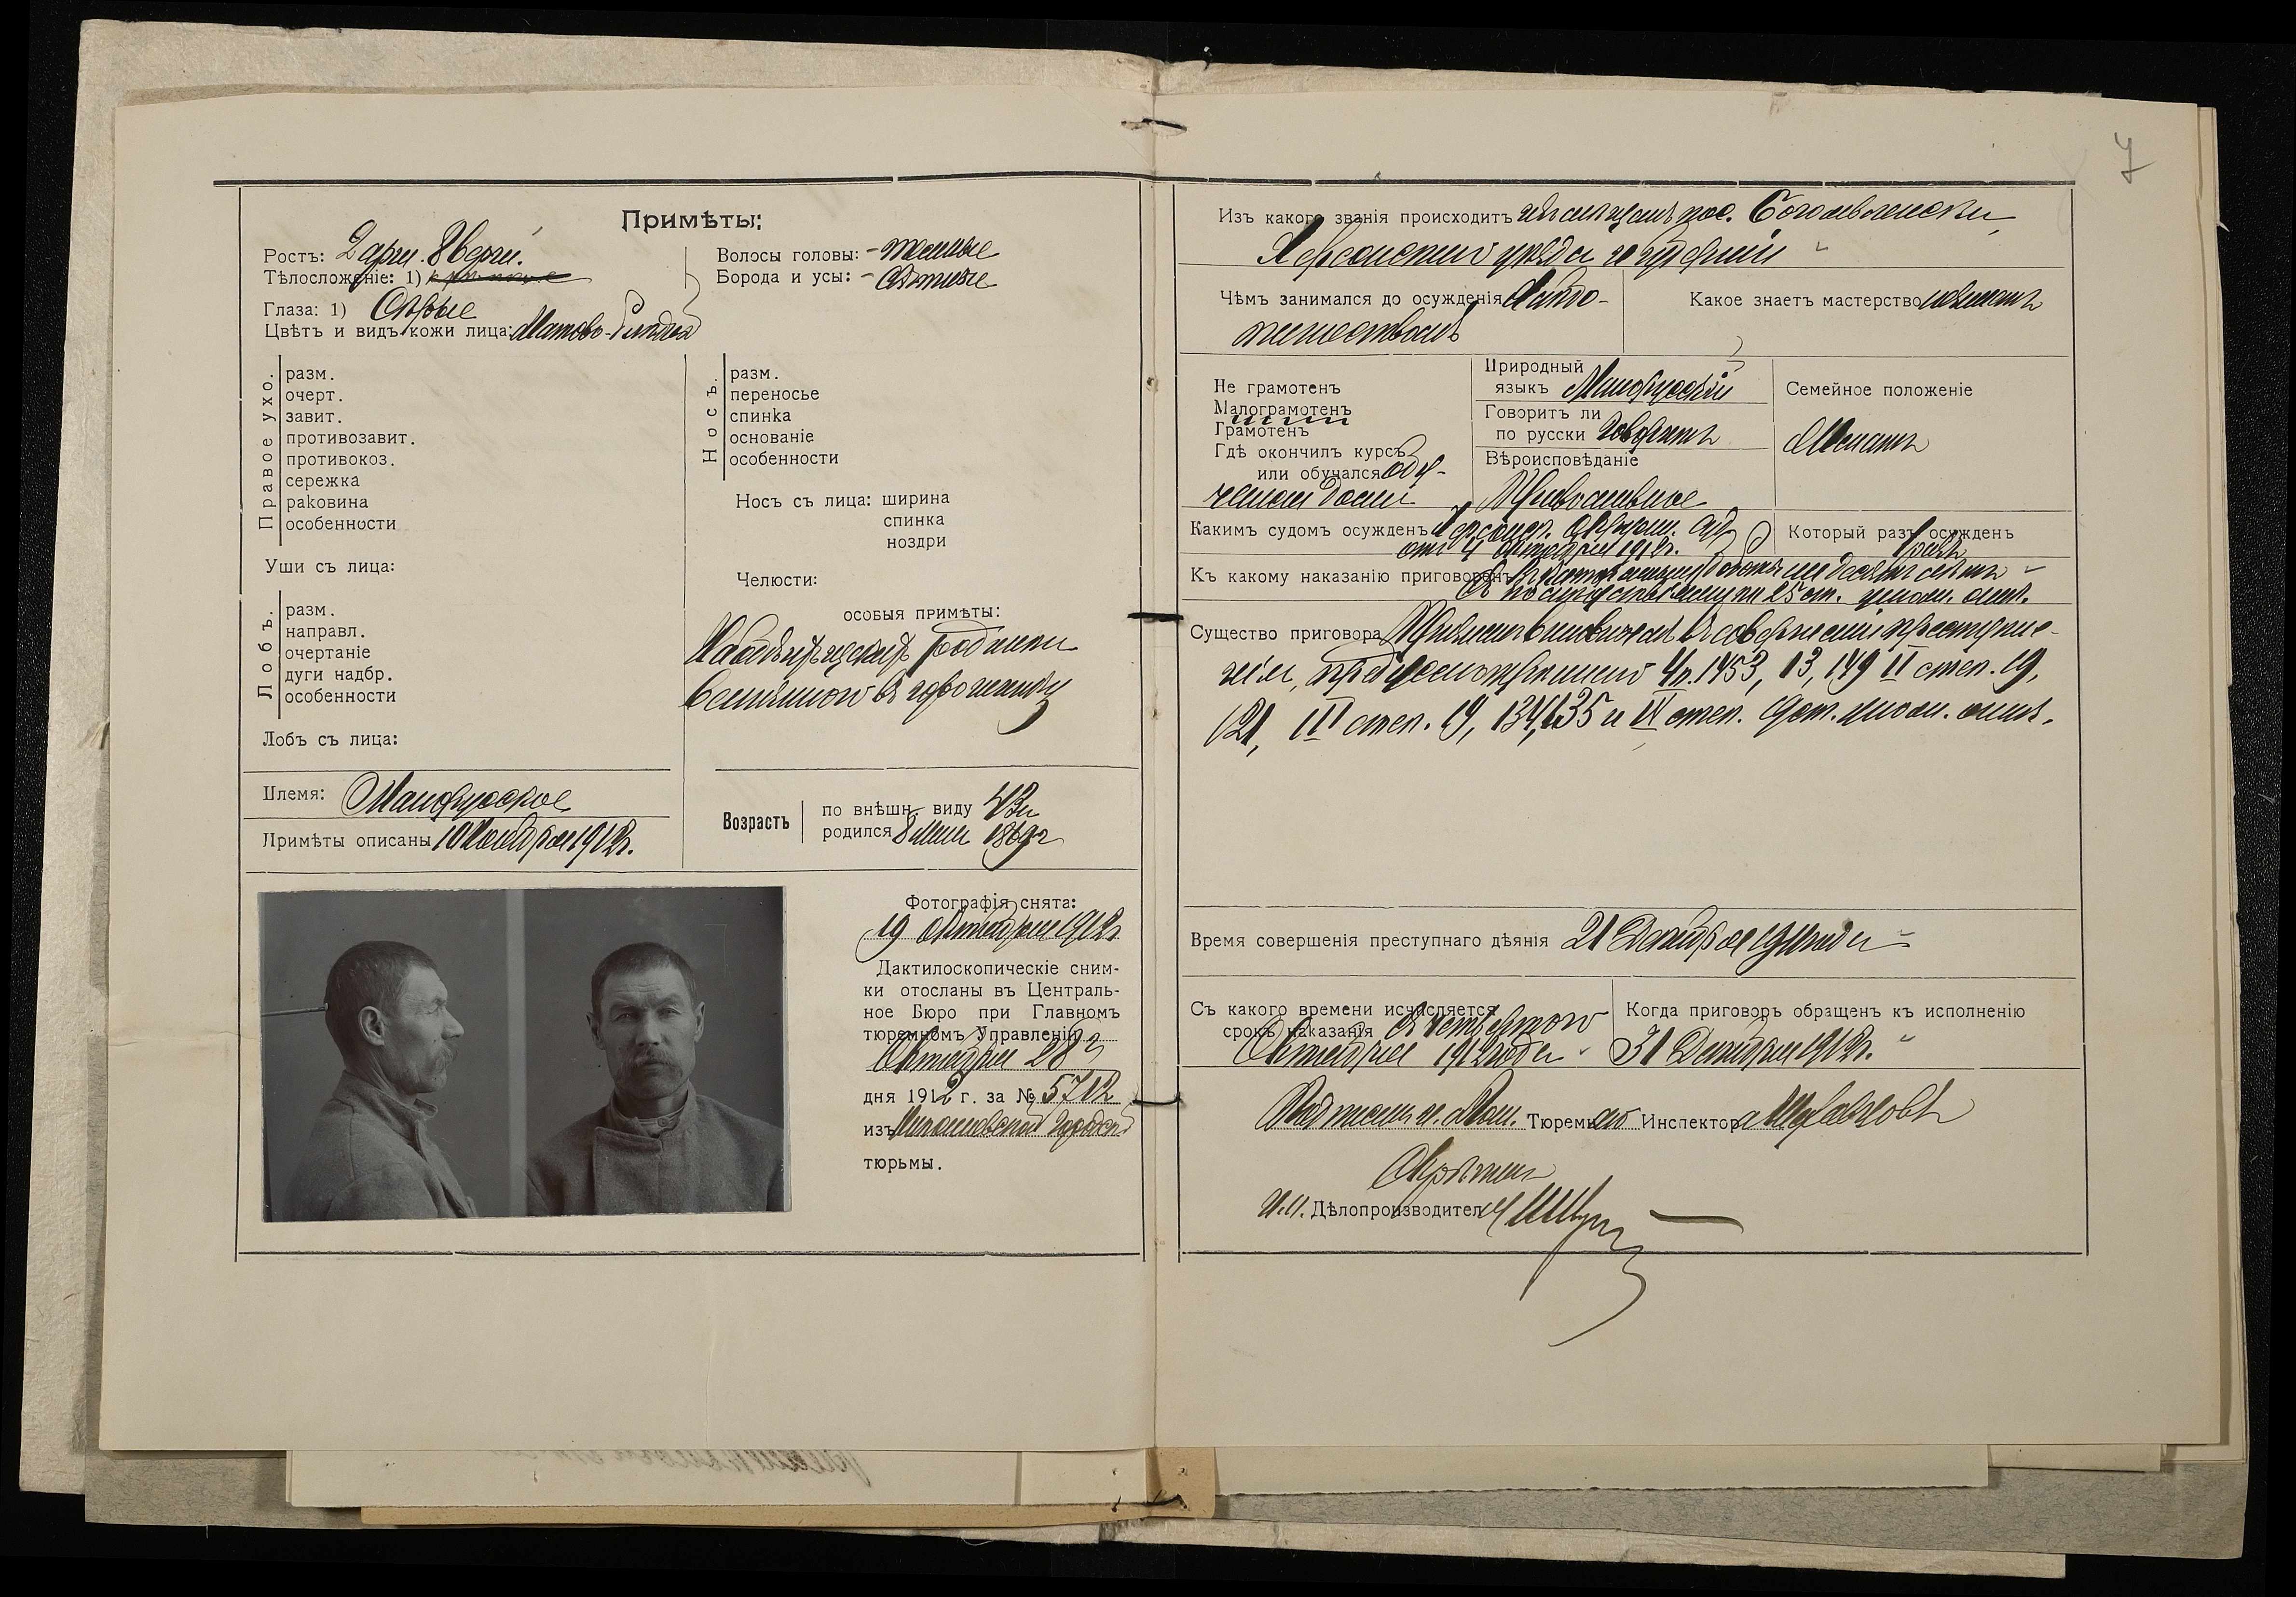 7
Примѣты:
Ростъ: 2 арш. 8 верш.
Тѣлосложеніе: 1)
Глаза: 1) Сѣрые
Цвѣтъ и видъ кожи лица: Матово-блѣдн
Волосы головы: - темные
Борода и усы: - свѣтлые
Правое ухо.
разм.
очерт.
завит.
противозавит.
противокоз.
сережка
раковина
особенности
Носъ.
разм.
переносье
спинка
основаніе
особенности
Уши съ лица:
Носъ съ лица: ширина
спинка
ноздри
Челюсти:
Лобъ.
разм.
направл.
очертаніе
дуги надбр.
особенности
Лобъ съ лица:
особыя примѣты:
родинки
Племя: Малорусское
Примѣты описаны 10 Ноября 1912г.
Возрастъ
по внѣшн. виду 43 л
родился 8 1869 г
Фотографія снята:
19 Октября 1912г
Дактилоскопическіе сним-
ки отосланы въ Централь-
ное Бюро при Главномъ
тюремномъ Управленіи
Октября 28
дня 1912 г. за № 5712
изъ Николаевской городской
тюрьмы.
Изъ какого званія происходитъ пос. Богоявленска,
Херсонскаго уѣзда и губерніи
Чѣмъ занимался до осужденія Хлѣбо-
пашествомъ
Какое знаетъ мастерство
Не грамотенъ
Малограмотенъ
Грамотенъ
Гдѣ окончилъ курсъ
или обучался обу-
чался дома
Природный
языкъ Малорусскій
Говоритъ ли
по русски Говоритъ
Вѣроисповѣданіе
Православное
Семейное положеніе
Женатъ
Какимъ судомъ осужденъ Херсонск. Окружн. Суд
отъ 4 Октября 1912г.
Который разъ осужденъ
1 разъ
Къ какому наказанію приговоренъ Въ каторжныя работы на десять лѣтъ
съ послѣдствіями по 25 ст. улож. о нак.
Существо приговора Признанъ виновнымъ въ совершеніи преступле-
нія, предусмотрѣннаго 4 п. 1453, 13, 149 II степ. 19,
121, III степ. 19, 134, 135 и IV степ. 19 ст. улож. о нак.
Время совершенія преступнаго дѣянія 21 Декабря года
Съ какого времени исчисляется
срокъ наказанія Съ четвертаго
Октября 1912 года
Когда приговоръ обращенъ къ исполненію
31 Декабря 1912г.
Тюремнаго Инспектора
Скрѣпилъ
И.д. Дѣлопроизводителя